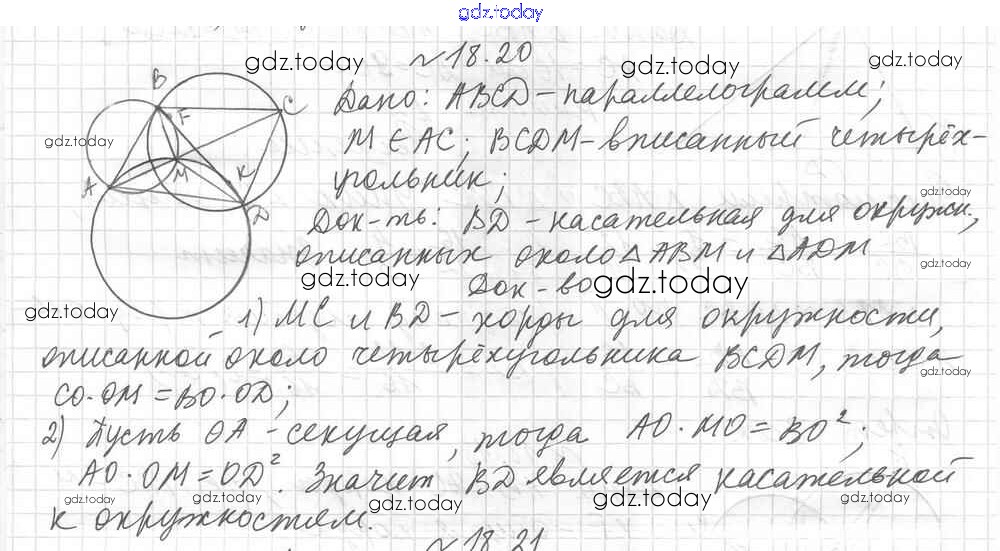 gdz.today
№18.20
gdz.today gdz.today gdz.today
Дано: ABCD-параллелограмм;
gdz.today
M∈AC; BCDM-вписанный четырёх-
угольник;
gdz.today
Док-ть: BD-касательная для окружн.,
описанных около △ABM и △ADM
gdz.today
Док-во
gdz.today gdz.today
gdz.today
1) MC и BD-хорды для окружности,
описанной около четырёхугольника BCDM, тогда
gdz.today
CO·OM=BO·OD;
2) Пусть OA-секущая, тогда AO·MO=BO²;
AO·OM=OD². Значит BD является касательной
gdz.today gdz.today gdz.today gdz.today gdz.today
к окружностям.
№18.21
B
C
F
M
K
A
D